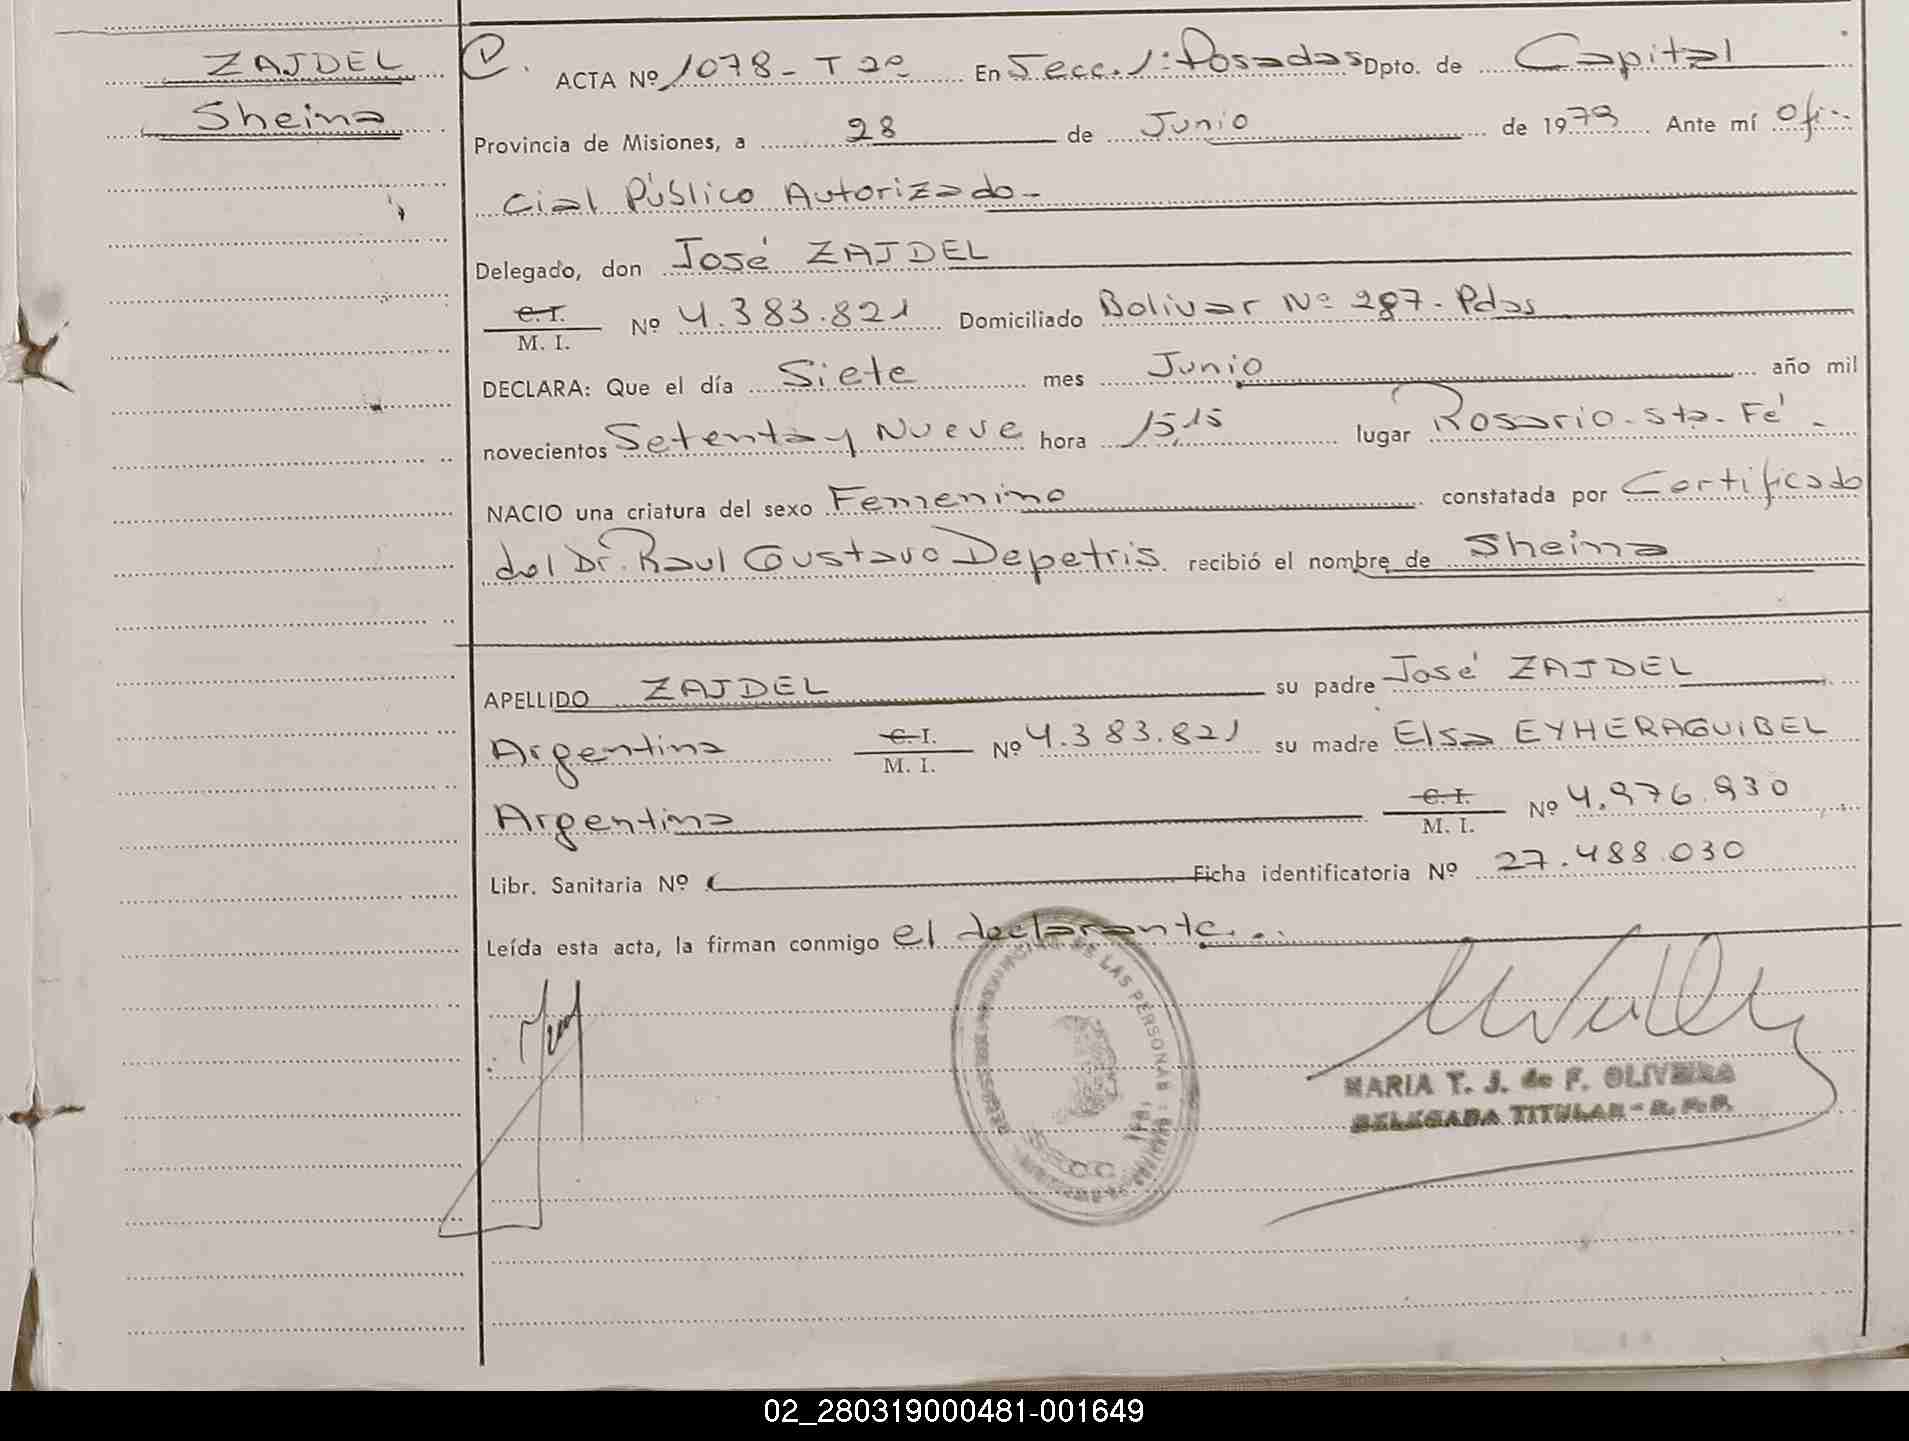 ZAJDEL
Sheina
ACTA Nº 1078 - T 2º En Secc. 1ª Posadas Dpto. de Capital
Provincia de Misiones, a 28 de Junio de 1979 Ante mí Ofi-
cial Público Autorizado -
Delegado, don José ZAJDEL
C. I.
M. I. Nº 4.383.821 Domiciliado Bolivar Nº 287 - Pdas
DECLARA: Que el día Siete mes Junio año mil
novecientos Setenta y Nueve hora 15,15 lugar Rosario - Sta. Fé -
NACIO una criatura del sexo Femenino constatada por Certificado
del Dr. Raul Gustavo Depetris recibió el nombre de Sheina
APELLIDO ZAJDEL su padre José ZAJDEL
Argentina C. I. M. I. Nº 4.383.821 su madre Elsa EYHERAGUIBEL
Argentina C. I. M. I. Nº 4.976.930
Libr. Sanitaria Nº Ficha identificatoria Nº 27.488.030
Leída esta acta, la firman conmigo el declarante..
DE LAS PERSONAS
MARIA T. J. de F. OLIVEIRA
DELEGADA TITULAR - R. P. P.
02_280319000481-001649